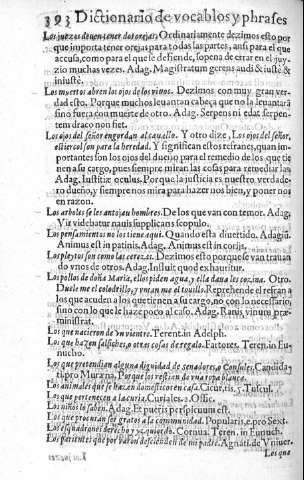 393 Dictionario de vocablos y phrases
Los juezes deuen tener dos orejas. Ordinariamente dezimos esto por
que importa tener orejas para todas las partes, ansi para el que
accusa, como para el que se defiende, so pena de errar en el juy-
zio muchas vezes. Adag. Magistratum gerens audi & iustè &
iniustè.
Los muertos abren los ojos de los viuos. Dezimos con muy gran ver
dad esto. Porque muchos leuantan cabeça que no la leuantarã
sino fuera con muerte de otro. Adag. Serpens ni edat serpen-
tem draco non fiet.
Los ojos del señor engordan al cauallo. Y otro dize, Los ojos del señor
estiercol son para la heredad. Y significan estos refranes, quan im
portantes son los ojos del dueño para el remedio de los que tie
nen a su cargo, pues siempre miran las cosas para remediarlas
Adag. Iustitiæ oculus. Porque la justicia es nuestro verdade-
ro dueño, y siempre nos mira para hazer nos bien, y poner nos
en razon.
Los arboles se les antojan hombres. De los que van con temor. Adag,
Vir videbatur nauis supplicans scopulo.
Los pensamientos no los tiene aqui. Quando esta diuertido. Adagiũ.
Animus est in patinis. Adag. Animus est in corijs.
Los pleytos son como las cerezas. Dezimos esto porque se van trauan
do vnos de otros. Adag. Insluit quod exhauritur.
Los pollos de doña Maria, ellos piden agua, y ella dana les cozina. Otro.
Duele me el colodrillo, y vntan me el touillo. Reprehende el refran a
los que acuden a los que tienen a su cargo, no con lo necessario,
sino con lo que le haze poco al caso. Adag. Ranis vinum præ-
ministrat.
Los que nacieron de vn vientre. Terent. in Adelph.
Los que hazen salsichas, o otras cosas de regalo. Fartores. Teren. in Eu-
nucho.
Los que pretendian alguna dignidad de senadores, o Consules. Candida-
ti pro Murana. Porque se vestian de vna ropa blanca.
Los animales que se hazen domesticos en casa. Cicures, y Tuscul.
Los que pertenecen a la curia. Curiales. 2. Offic.
Los niños lo saben. Adag. Et pueris perspicuum est.
Los que procuran ser gratos a la communidad. Populares, pro Sext.
Los esquadrones derecho y yzquierdo. Cornua. Teren. in Eunuch.
Los parientes que por varon descienden de mi padre. Agnati. de Vniuer.
Los que